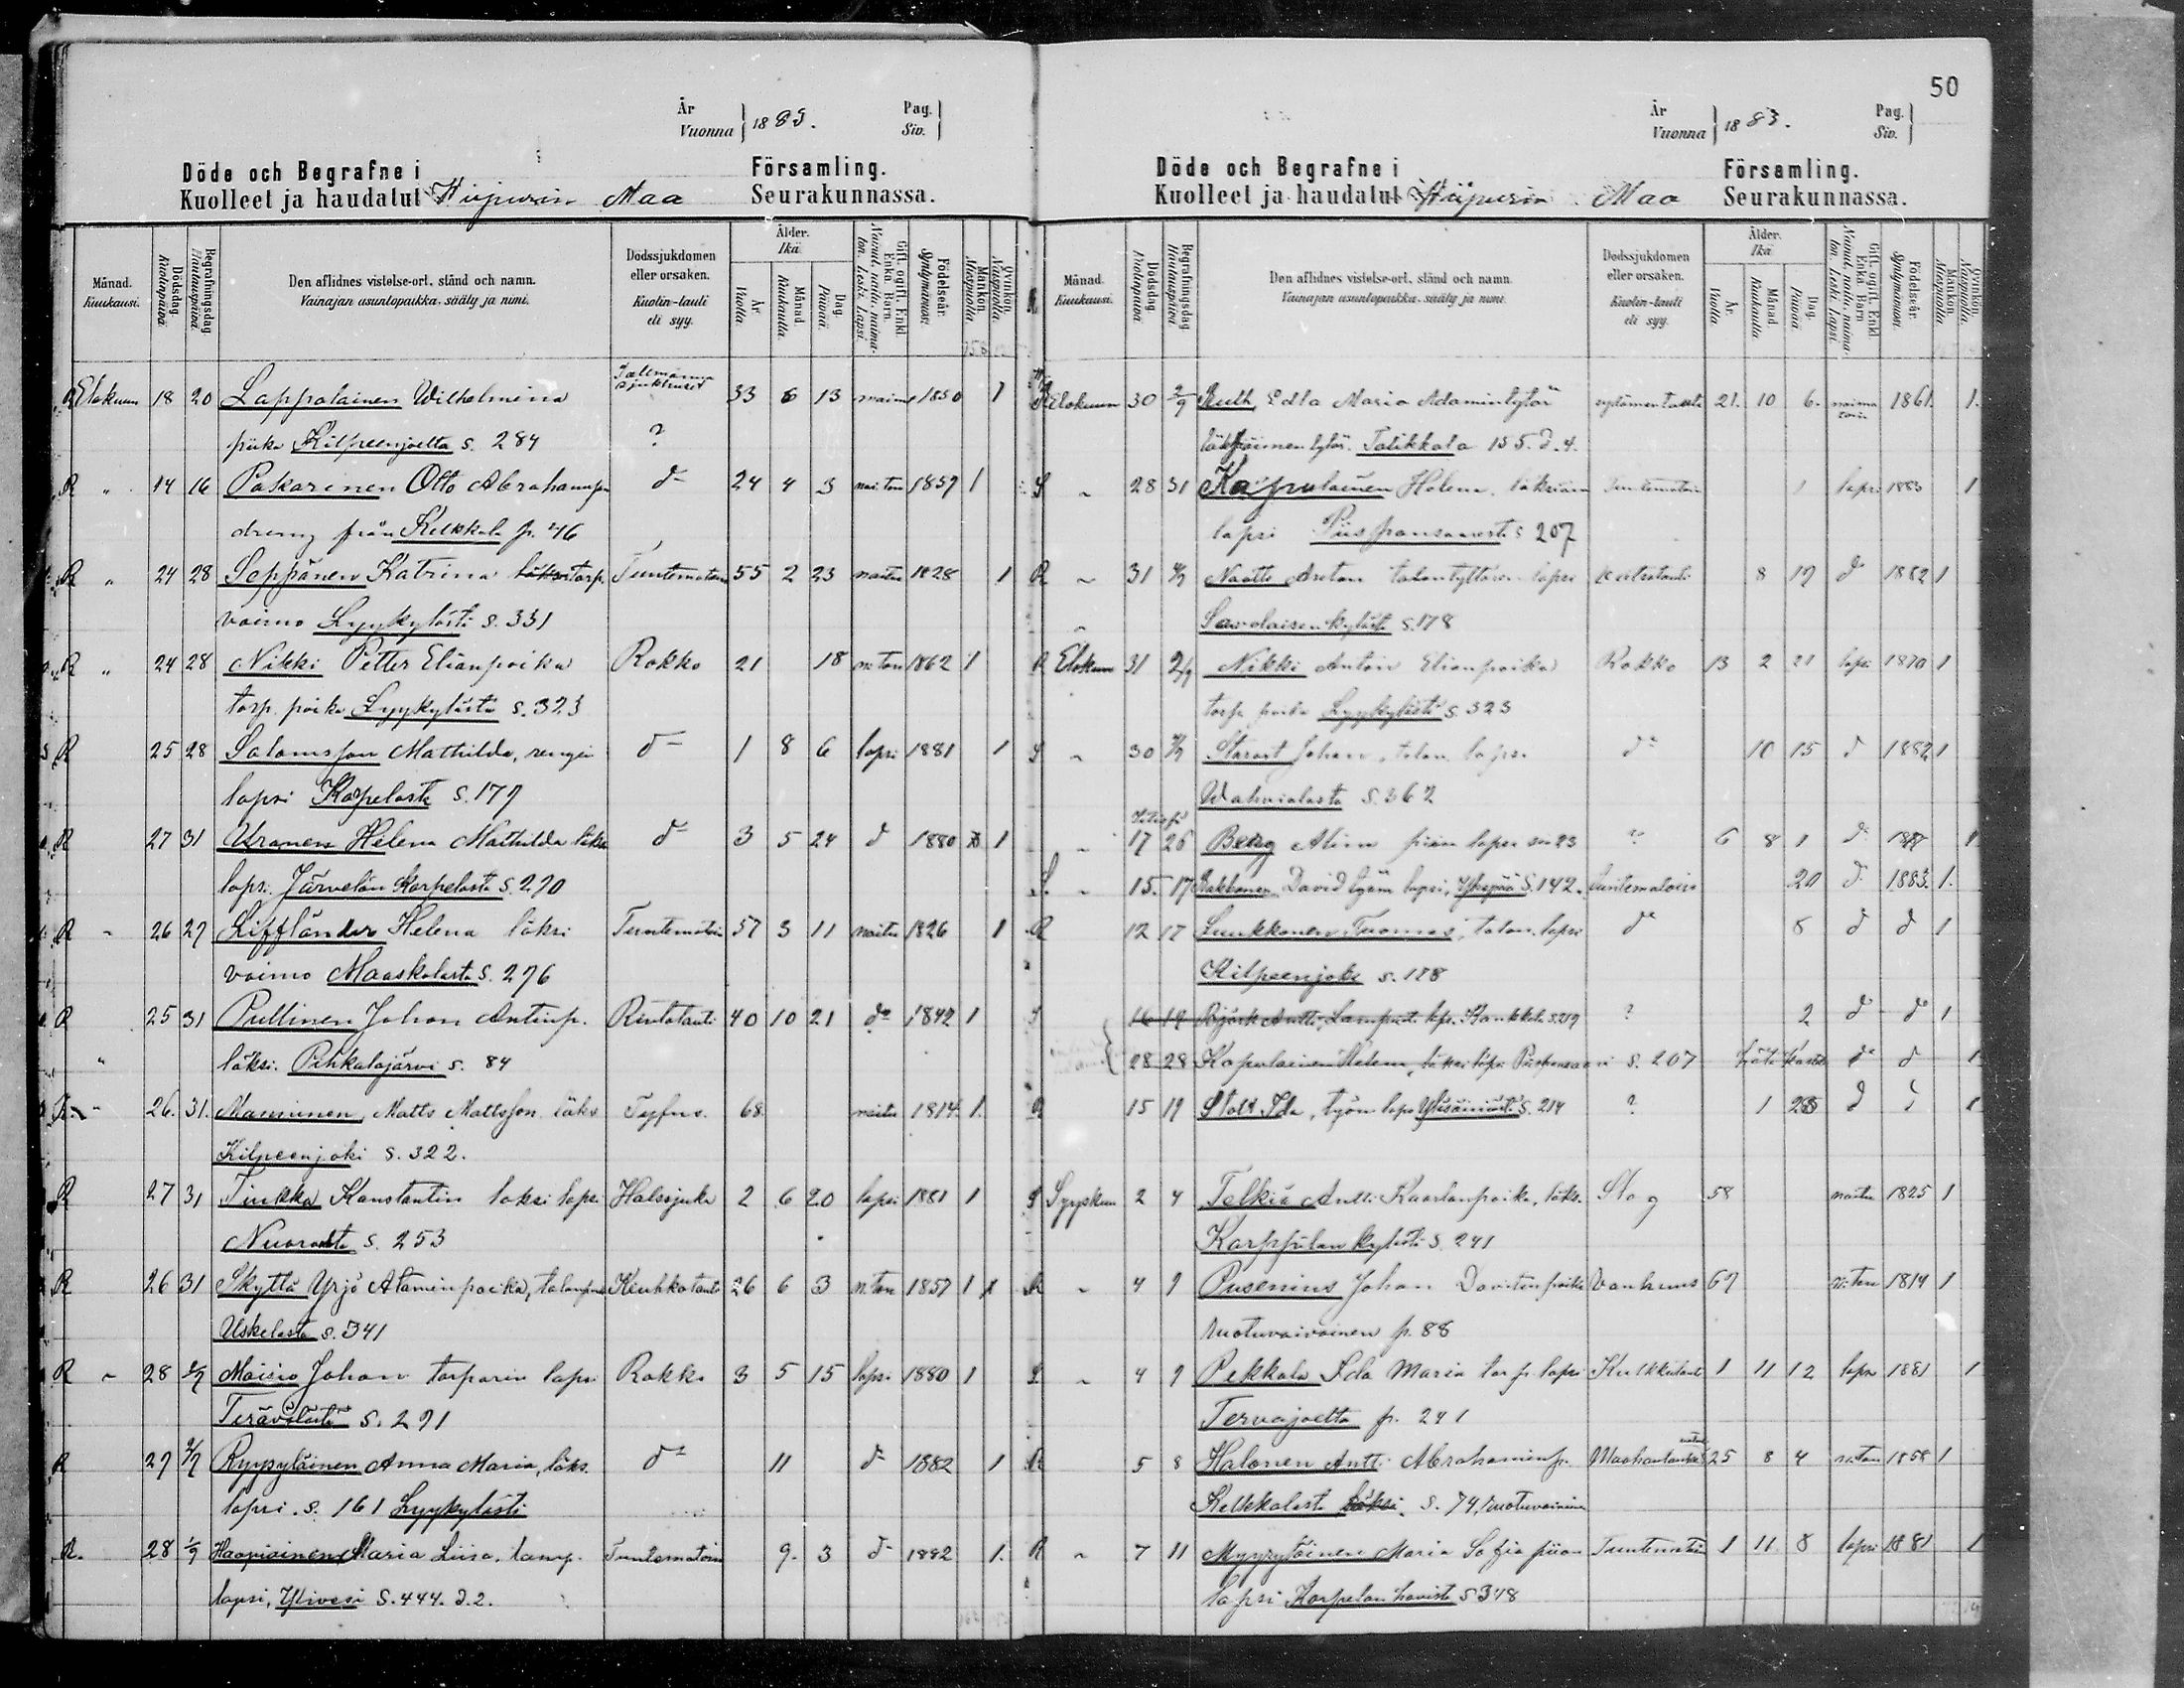 50
År Vuonna } 1883. Pag. Siv. }
Döde och Begrafne i Församling.
Kuolleet ja haudatut Wiipurin Maa Seurakunnassa.
Månad. Kuukausi. Dödsdag. Kuolinpäivä. Begrafningsdag. Hautauspäivä. Den aflidnes vistelse-ort, stånd och namn. Vainajan asuntopaikka, sääty ja nimi. Dödssjukdomen eller orsaken. Kuolin-tauti eli syy. Ålder. Ikä. År. Vuotta. Månad. Kuukautta. Dag. Päivää. Gift, ogift, Enkl. Enka. Barn. Nainut, naitu, naimaton, Leski. Lapsi. Födelseår. Syntymävuosi. Mankön. Miespuolia. Qvinkön. Naispuolia.
R Elokuun 18 20 Lappalainen Wilhelmina 33 6 13 1850 1
piika Kilpeenjoelta s. 284 ?
R " 14 16 Pakarinen Otto Abrahamp. d:o 24 4 3 nai.ton 1859 1
dreng från Kelkkala p. 46
R " 24 28 Seppänen Katrina torp. Tuntematoin 55 2 23 naitu 1828 1
vaimo Lyykylästä s. 331
R " 24 28 Nikki Petter Elianpoika Rokko 21 18 n:ton 1862 1
torp. poika Lyykylästä s. 323
R 25 28 Salomsson Mathilda, rengin d:o 1 8 6 lapsi 1881 1
lapsi Karpelasta s. 177
R 27 31 Uranen Helena Mathilda läks. d:o 3 5 24 d 1880 1
lapsi. Järvelän Karpelasta s. 290
R " 26 27 Liffländer Helena läksi Tuntematoin 57 3 11 naitu 1826 1
vaimo Maaskolasta s. 276
R 25 31 Pullinen Johan Antinp. Rintatauti 40 10 21 d:o 1842 1
" läksi. Pihkalajärvi s. 84
R " 26. 31. Manninen, Matts Mattsson läks. Tyfus. 68. naitu 1814. 1.
Kilpeenjoki s. 322.
R 27 31 Tiukka Konstantin läksi lapsi Halssjuka 2 6 20 lapsi 1881 1
Nuoraalta s. 253
R 26 31 Skyttä Yrjö Ataminpoika, Keuhkotauti 26 6 3 n.ton 1857 1
Uskelasta s. 341
R " 28 2/9 Moisio Johan torparin lapsi Rokko 3 5 15 lapsi 1880 1
Terävälästä s. 291
R 29 2/9 Ryypyläinen Anna Maria, läks. d:o 11 d:o 1882 1
lapsi. s. 161 Lyykylästä
R. 28 1/9 Haapiainen Maria Liisa. lamp. Tuntematoin 9. 3 d:o 1882 1.
lapsi, Ylivesi S. 444. d. 2.
År Vuonna } 1883. Pag. Siv. }
Döde och Begrafne i Församling.
Kuolleet ja haudatut Wiipurin Maa Seurakunnassa.
Månad. Kuukausi. Dödsdag. Kuolinpäivä. Begrafningsdag. Hautauspäivä. Den aflidnes vistelse-ort, stånd och namn. Vainajan asuntopaikka, sääty ja nimi. Dödssjukdomen eller orsaken. Kuolin-tauti eli syy. Ålder. Ikä. År. Vuotta. Månad. Kuukautta. Dag. Päivää. Gift, ogift, Enkl. Enka. Barn. Nainut, naitu, naimaton, Leski. Lapsi. Födelseår. Syntymävuosi. Mankön. Miespuolia. Qvinkön. Naispuolia.
R Elokuun 30 2/9 Ruth, Edla Maria Adamintytär sydämentauti 21. 10 6. naimatoin 1861. 1.
tytär. Tatikkala 155. d. 4.
S " 28 31 Kapulainen Helena, läksiäm Tuntematoin 1 lapsi 1883 1
lapsi Piispansaaresta s 207
R " 31 Naatti Anton talontyttären lapsi 8 17 d:o 1882 1
Savolaisen kylästä s. 178
R Elokuun 31 2/9 Nikki Anton Elianpoika Rokko 13 2 21 lapsi 1870 1
torp. poika Lyykylästä s. 323
S " 30 Starast Johan, talon lapsi d:o 10 15 d 1882 1
Wahvialasta s. 362
" 17 26 Berg Alina piian lapsi ? 6 8 1 d:o 1
S. " 15. 17 David työm lapsi, Ykspää S. 142. tuntematoin 20 d 1883. 1.
R 12 17 Luukkonen Tuomas, talon lapsi d:o 8 d d 1
Kilpeenjoki s. 188
S 16 19 Björk Antti, Lampuoti laps. Kankkala s. 219 ? 2 d d:o 1
28 28 Kapulainen Helena, läksi lapsi Piispansaari s. 207 d:o d 1
R 15 19 Stolt Ida, työm laps Yläsäiniöstä s. 214 ? 1 28 d 1
S Syyskuun 2 4 Telkiä Antti Kaarlanpoika, läks. Slag 58 naitu 1825 1
Karppilan kylästä s. 241
R " 4 9 Pusenius Johan Davidinpoika Vanhuus 69 n:ton 1814 1
ruotuvaivainen p. 88
S " 4 9 Pekkala Ida Maria torp. lapsi Kurkkutauti 1 11 12 lapsi 1881 1
Tervajoelta p. 241
R 5 8 Halonen Antti Abrahaminp. 25 8 4 n:ton 1858 1
Kelkkalasta s. 74, ruotuvaivainen
R " 7 11 Myyryläinen Maria Sofia piian Tuntematoin 1 11 8 lapsi 1881 1
lapsi Karpelan hovista s 348